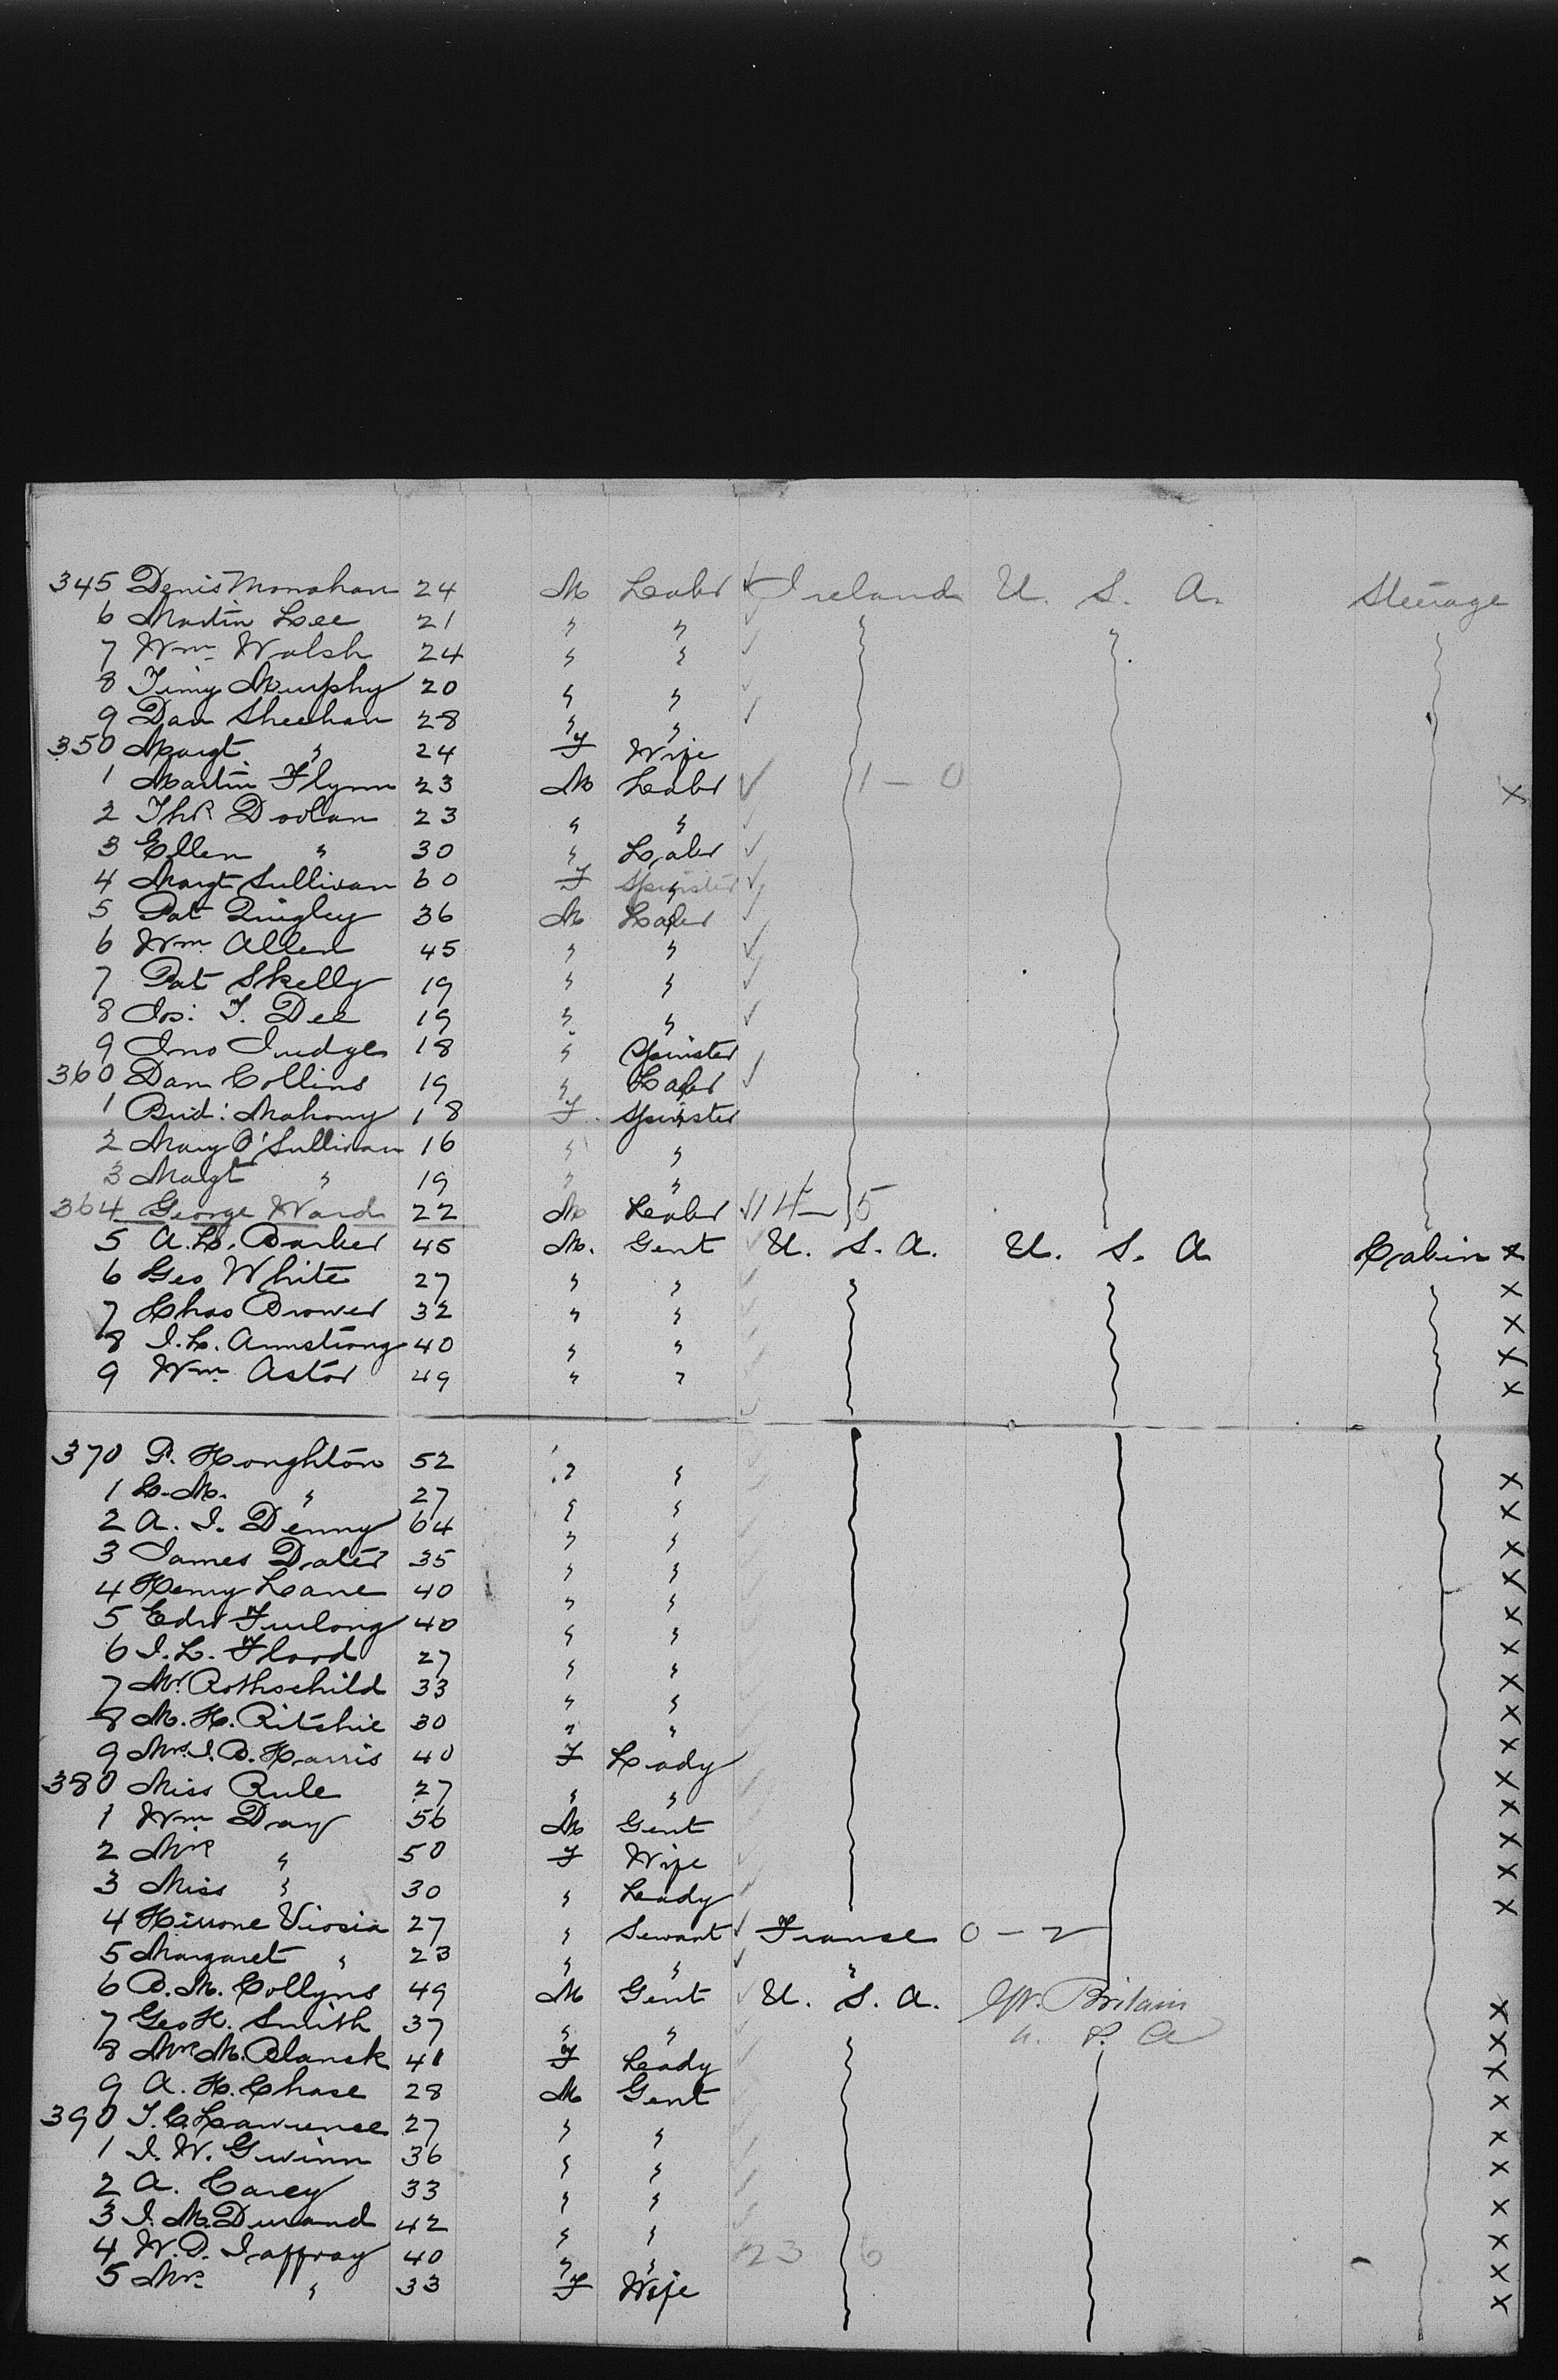 345 Denis Monahan 24 M Labr ✓ Ireland U. S. A. Steerage
6 Martin Lee 21 " " ✓
7 Wm Walsh 24 " " ✓
8 Timy Murphy 20 " " ✓
9 Dan Sheehan 28 " " ✓
350 Margt " 24 F Wife
1 Martin Flynn 23 M Labr ✓ 1 - 0 x
2 Thos Doolan 23 " " ✓
3 Ellen " 30 " Labr ✓
4 Margt Sullivan 60 F Spinster ✓
5 Pat Quigley 36 M Labr ✓
6 Wm Allen 45 " " ✓
7 Pat Skelly 19 " " ✓
8 Jos: T. Dee 19 " " ✓
9 Jno Judge 18 " Spinster
360 Dan Collins 19 " Labr ✓
1 Brid: Mahony 18 F Spinster
2 Mary O'Sullivan 16 " "
3 Margt " 19 " "
364 George Ward 22 M Labr ✓ 14 - 5
5 A. L. Barber 45 M. Gent ✓ U. S. A. U. S. A Cabin x
6 Geo White 27 " " ✓ x
7 Chas Brower 32 " " ✓ x
8 J. L. Armstrong 40 " " ✓ x
9 Wm Astor 49 " " ✓ x
370 P. Houghton 52 " " ✓ x
1 L. M. " 27 " " ✓ x
2 A. J. Denny 64 " " ✓ x
3 James Dater 35 " " ✓ x
4 Henry Lane 40 " " ✓ x
5 Edwd Furlong 40 " " x
6 J. L. Flood 27 " " x
7 Mr Rothschild 33 " " ✓ x
8 M. H. Ritchie 30 " " ✓ x
9 Mrs J. B. Harris 40 F Lady ✓ x
380 Miss Rule 27 " " ✓ x
1 Wm Day 56 M Gent ✓ x
2 Mrs " 50 F Wife ✓ x
3 Miss " 30 " Lady ✓ x
4 27 " Servant ✓ France 0 - 2
5 Margaret " 23 " " ✓ "
6 B. M. Collyns 49 M Gent ✓ U. S. A. Gt. Britain x
7 Geo H. Smith 37 " " ✓ U. S. A x
8 Mrs M. Blanck 41 F Lady ✓ x
9 A. H. Chase 28 M Gent x
390 T. C. Lawrence 27 " " ✓ x
1 J. W. Gwinn 36 " " ✓ x
2 A. Carey 33 " " ✓ x
3 J. M. Durand 42 " " ✓ x
4 W. P. Jaffray 40 " " 23 6 x
5 Mrs " 33 F Wife x